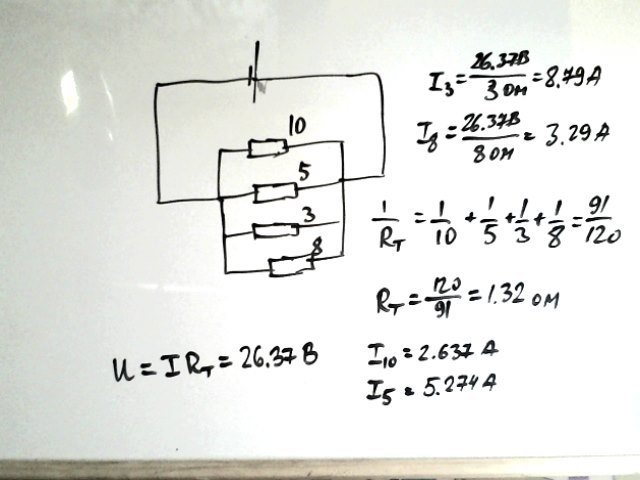 10
5
3
8
I₃ = 26.37В / 3 Ом = 8.79 А
I₈ = 26.37В / 8 Ом = 3.29 А
1/R_T = 1/10 + 1/5 + 1/3 + 1/8 = 91/120
R_T = 120/91 = 1.32 Ом
U = I R_T = 26.37 В
I₁₀ = 2.637 А
I₅ = 5.274 А